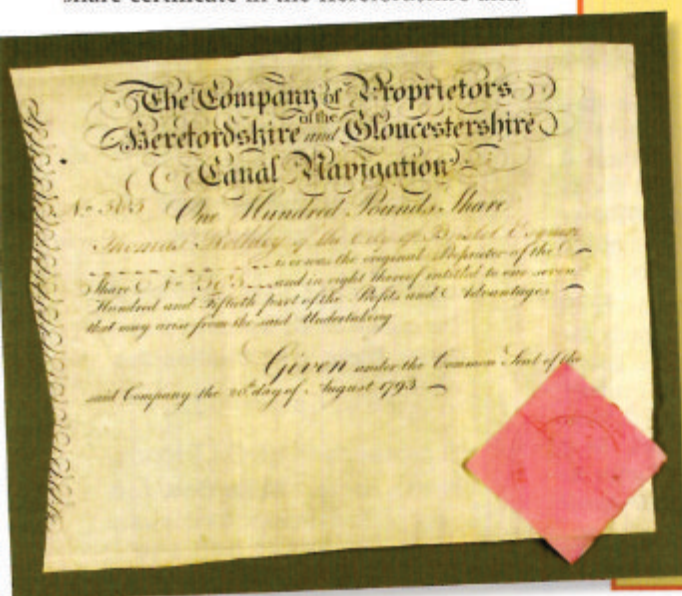 share certificate in the Herefordshire and
The Company of Proprietors
of the
Herefordshire and Gloucestershire
Canal Navigation
No. 503 One Hundred Pounds Share
Thomas of the City of Bristol Esquire
is or was the original Proprietor of the
Share No. 503 and in right thereof intitled to one seven
Hundred and Fiftieth part of the Profits and Advantages
that may arise from the said Undertaking
Given under the Common Seal of the
said Company the 20th day of August 1793